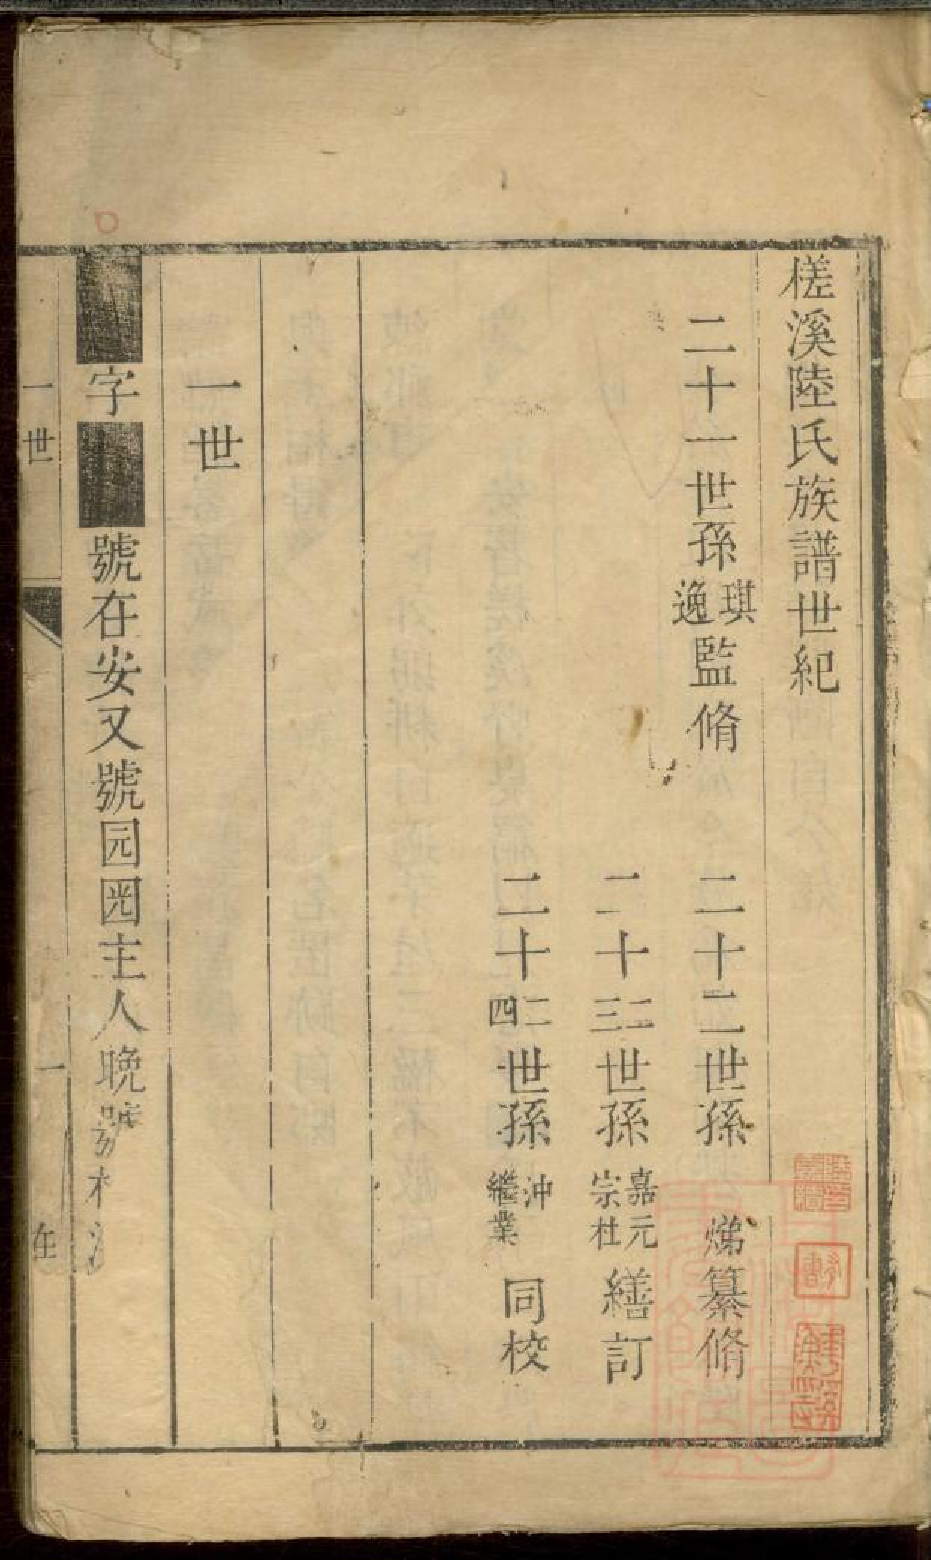 槎溪陸氏族譜世紀
二十一世孫琪逸監脩
二十二世孫焍纂脩
二十二三世孫嘉元宗杜繕訂
二十二四世孫沖繼業同校
一世
字 號在安又號园囦主人晚號
一世
一
在